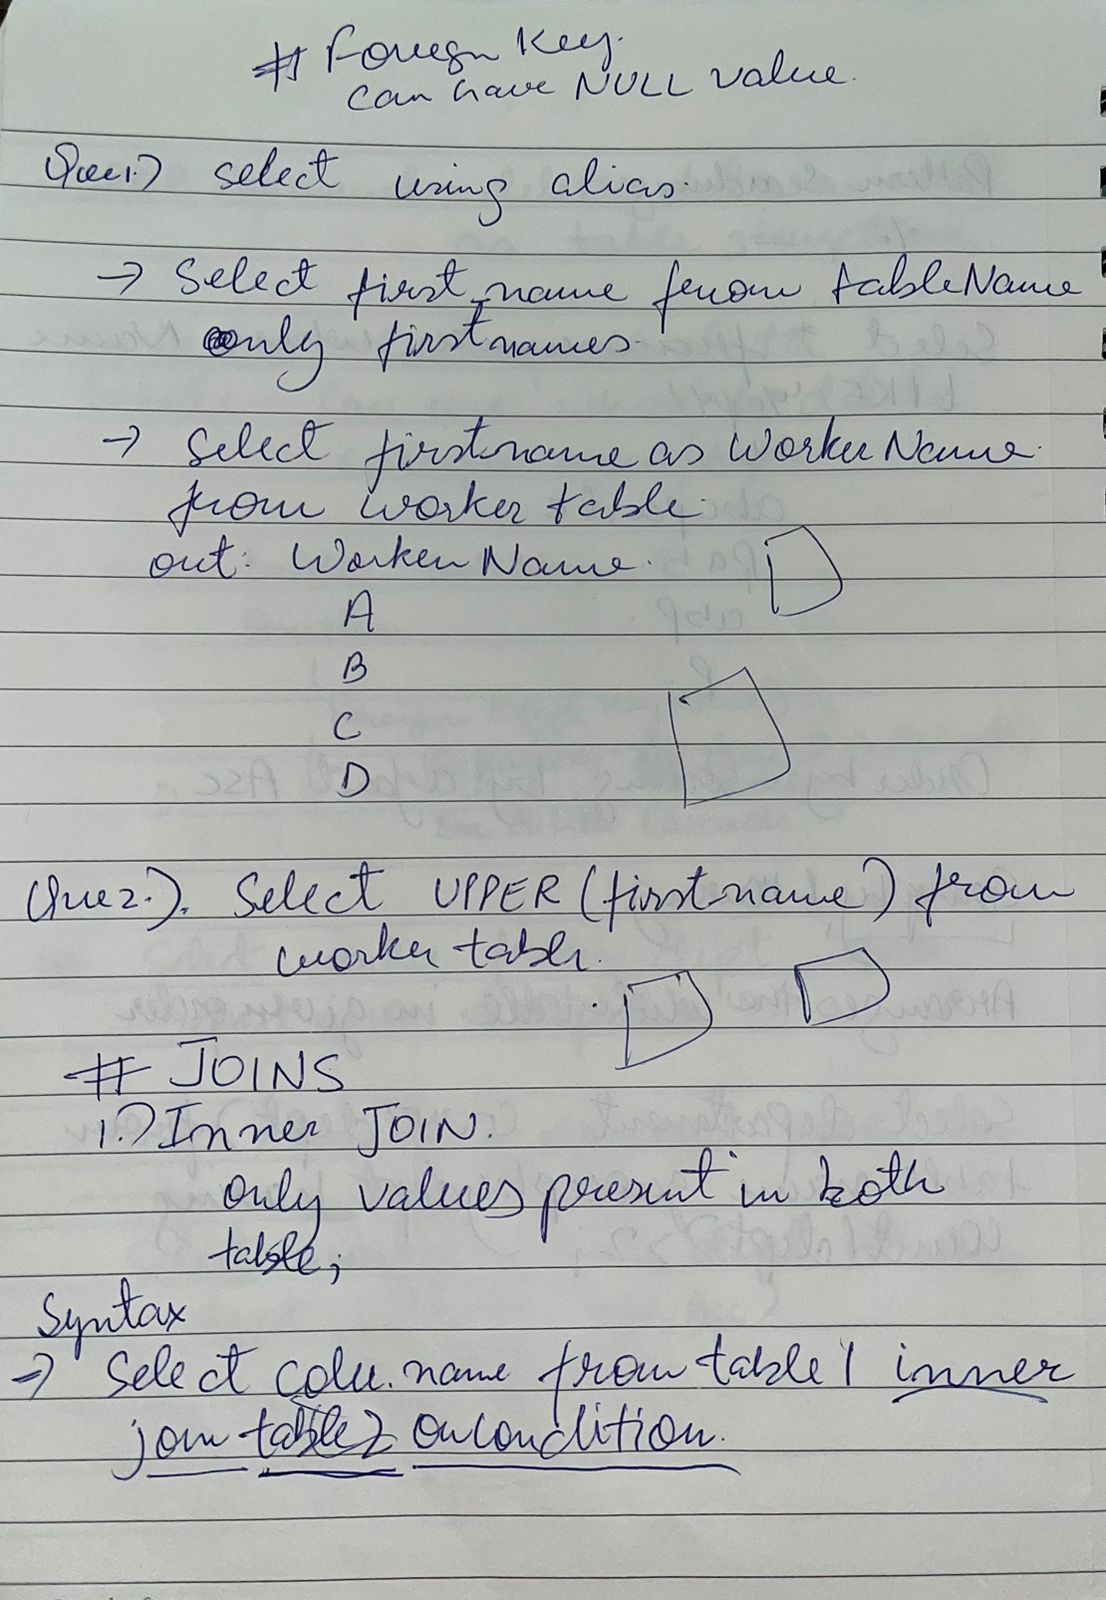 # Foreign Key.
can have NULL value.
Que1.) select using alias.
→ Select first_name from tableName
only firstnames.
→ Select firstname as WorkerName.
from worker table.
out: WorkerName.
A
B
C
D
Que2.). Select UPPER (firstname) from
worker table.
# JOINS
1.) Inner JOIN.
only values present in both
table;
Syntax
→ Select colu.name from table1 inner
join table2 on condition.